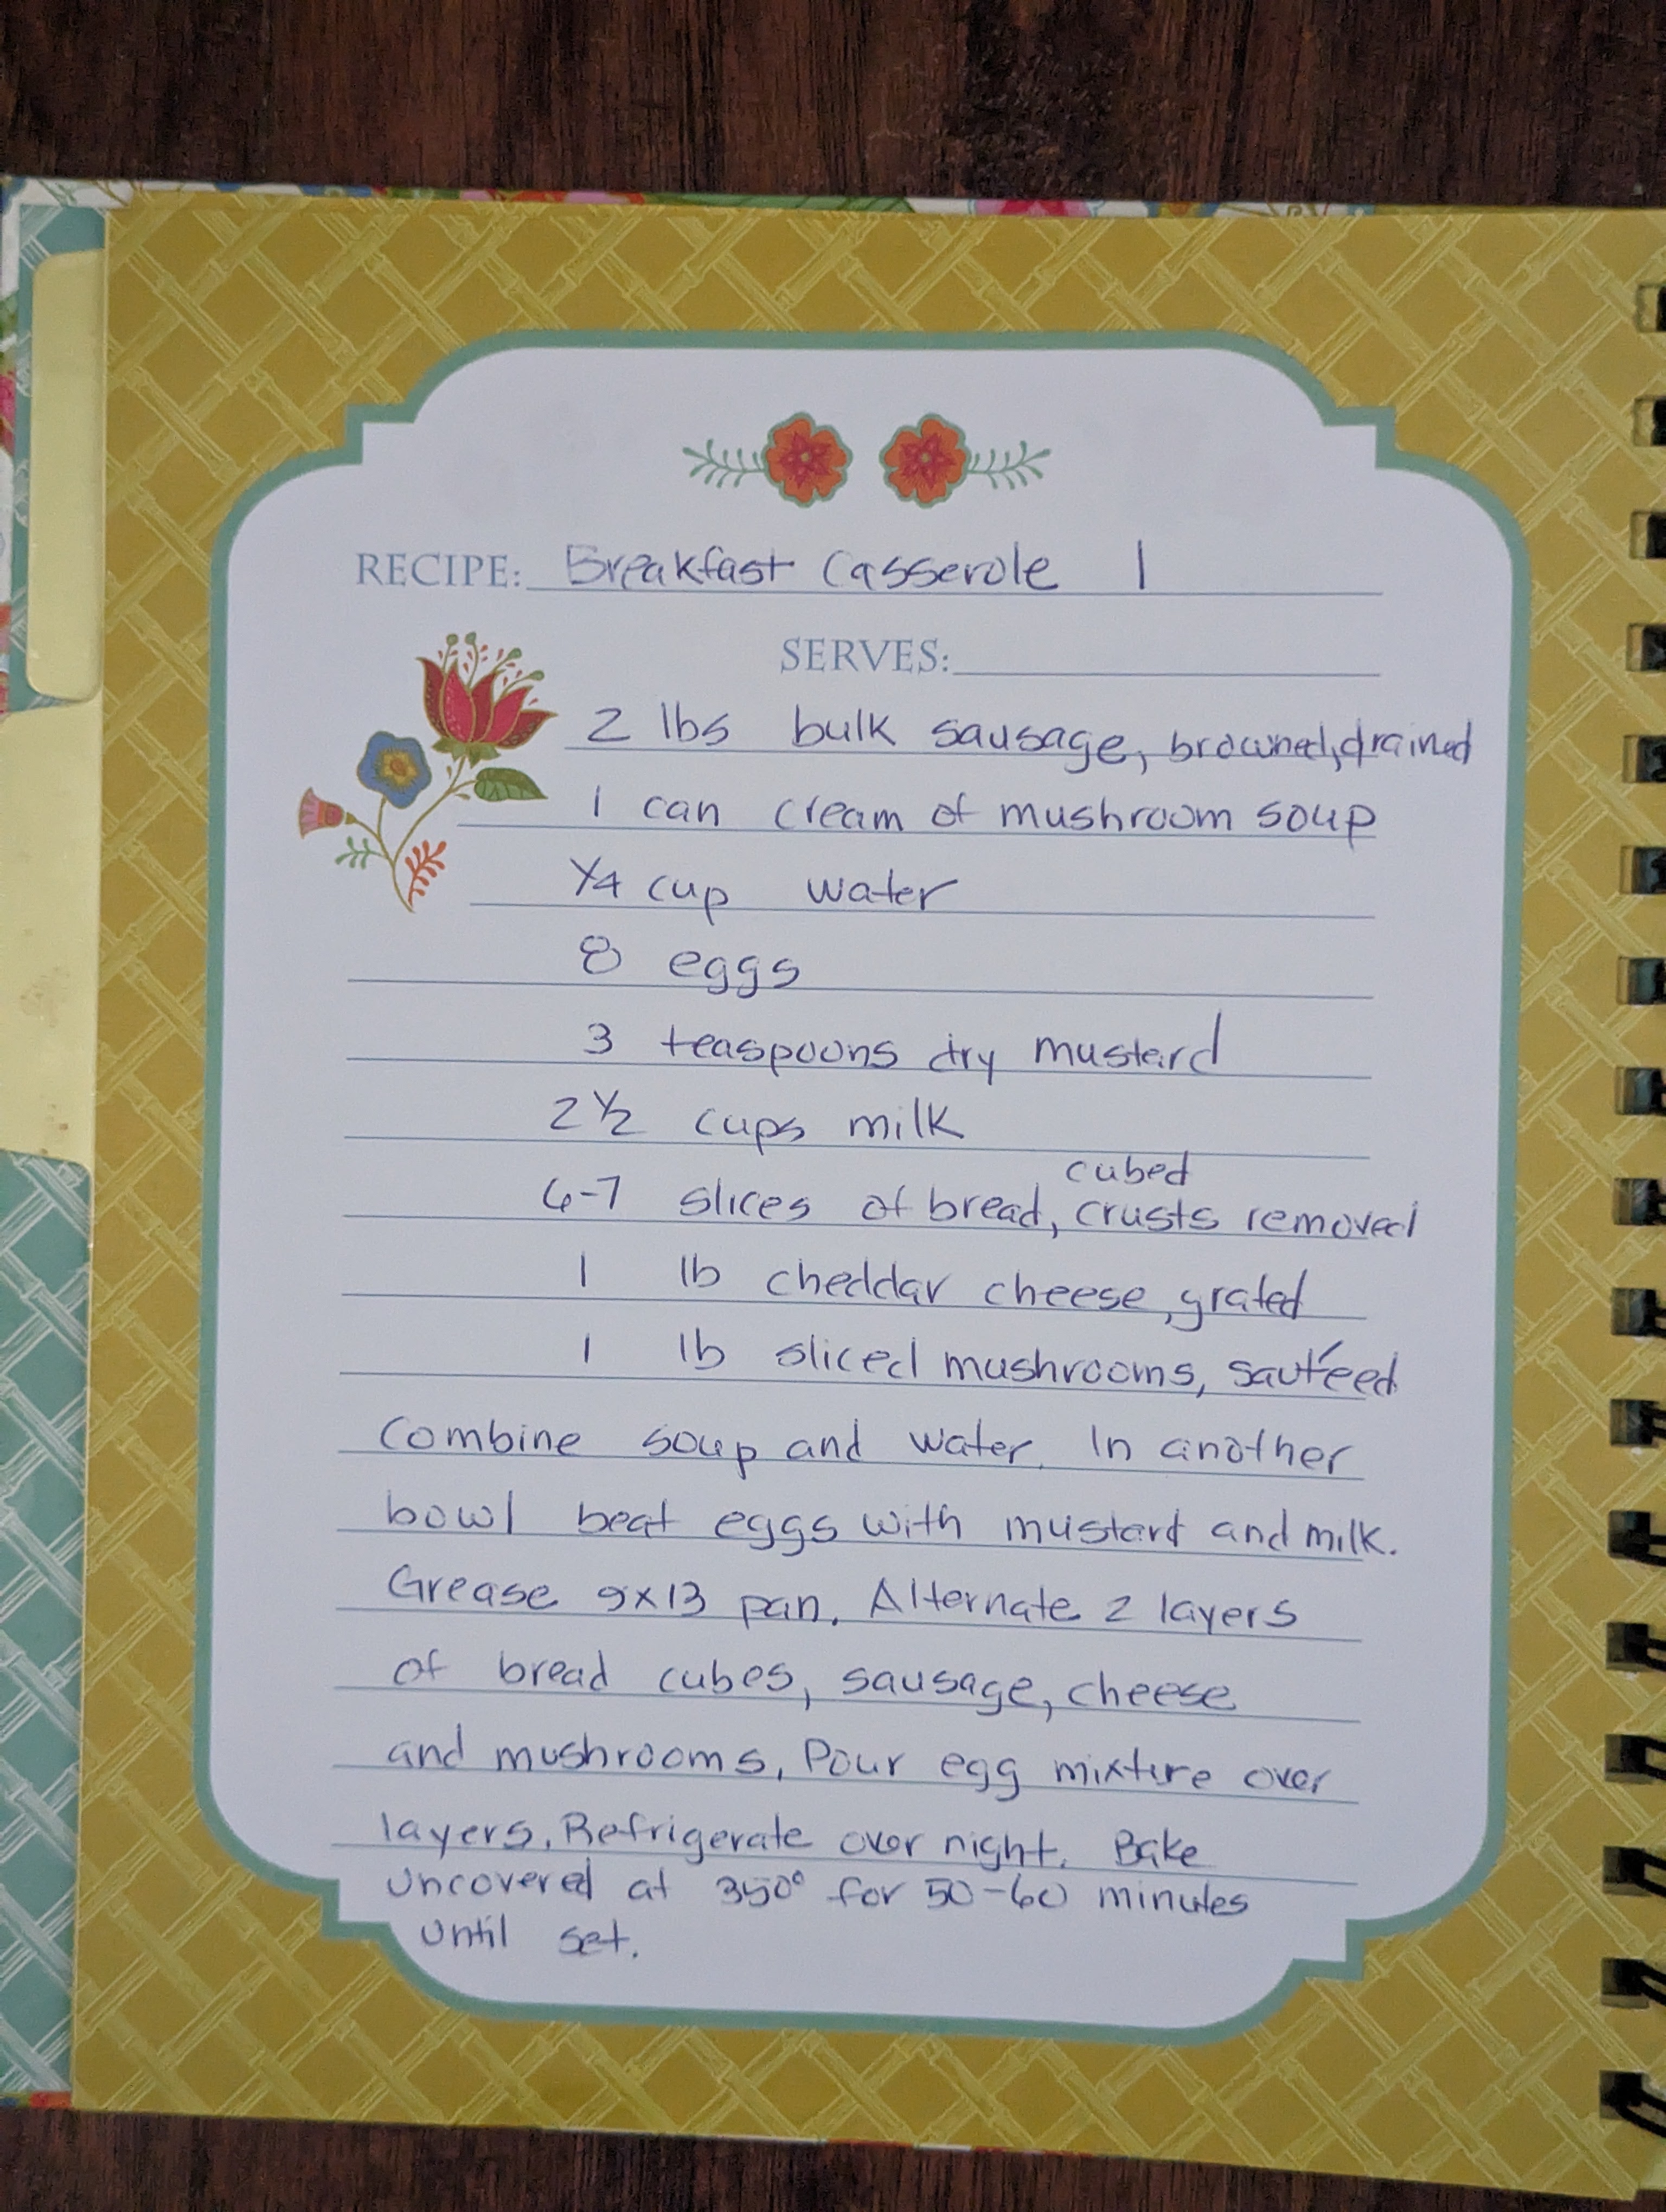 RECIPE: Breakfast Casserole 1
SERVES:
2 lbs bulk sausage, browned, drained
1 can cream of mushroom soup
1/4 cup water
8 eggs
3 teaspoons dry mustard
2 1/2 cups milk
cubed
6-7 slices of bread, crusts removed
1 lb cheddar cheese, grated
1 lb sliced mushrooms, sautéed
Combine soup and water. In another
bowl beat eggs with mustard and milk.
Grease 9x13 pan. Alternate 2 layers
of bread cubes, sausage, cheese
and mushrooms, Pour egg mixture over
layers. Refrigerate over night. Bake
Uncovered at 350° for 50-60 minutes
until set.